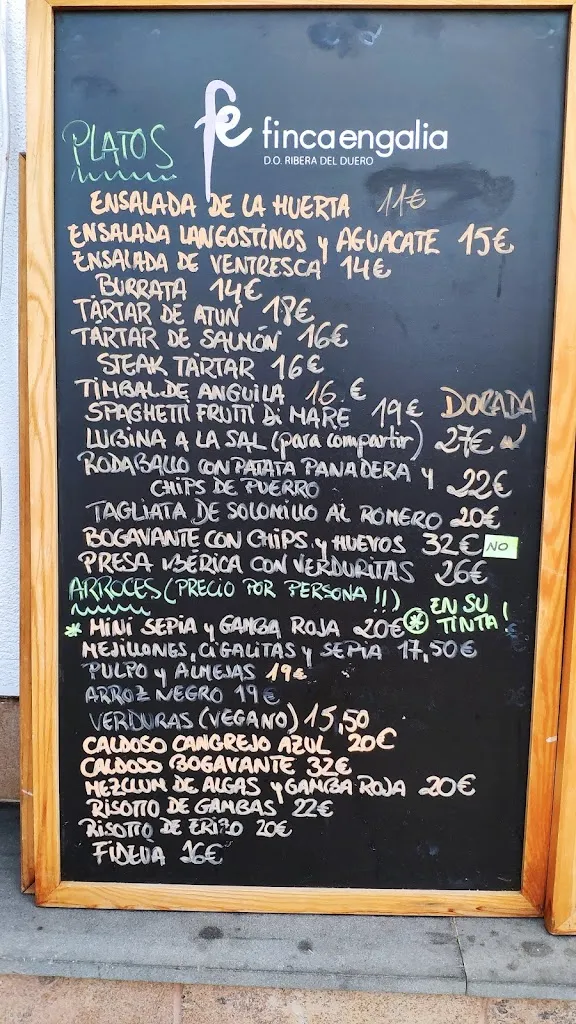 fe fincaengalia
D.O. RIBERA DEL DUERO
PLATOS
ENSALADA DE LA HUERTA 11€
ENSALADA LANGOSTINOS y AGUACATE 15€
ENSALADA DE VENTRESCA 14€
BURRATA 14€
TÁRTAR DE ATÚN 18€
TÁRTAR DE SALMÓN 16€
STEAK TÁRTAR 16€
TIMBAL DE ANGUILA 16 €
SPAGHETTI FRUTTI DI MARE 19€ DORADA
LUBINA A LA SAL (para compartir) 27€
RODABALLO CON PATATA PANADERA y
CHIPS DE PUERRO 22€
TAGLIATA DE SOLOMILLO AL ROMERO 20€
BOGAVANTE CON CHIPS y HUEVOS 32€ NO
PRESA IBÉRICA CON VERDURITAS 26€
ARROCES (PRECIO POR PERSONA !!)
* MINI SEPIA y GAMBA ROJA 20€ * EN SU
TINTA!
MEJILLONES, CIGALITAS y SEPIA 17,50€
PULPO y ALMEJAS 19€
ARROZ NEGRO 19€
VERDURAS (VEGANO) 15,50
CALDOSO CANGREJO AZUL 20€
CALDOSO BOGAVANTE 32€
MEZCLUM DE ALGAS y GAMBA ROJA 20€
RISOTTO DE GAMBAS 22€
RISOTTO DE ERIZO 20€
FIDEUA 16€